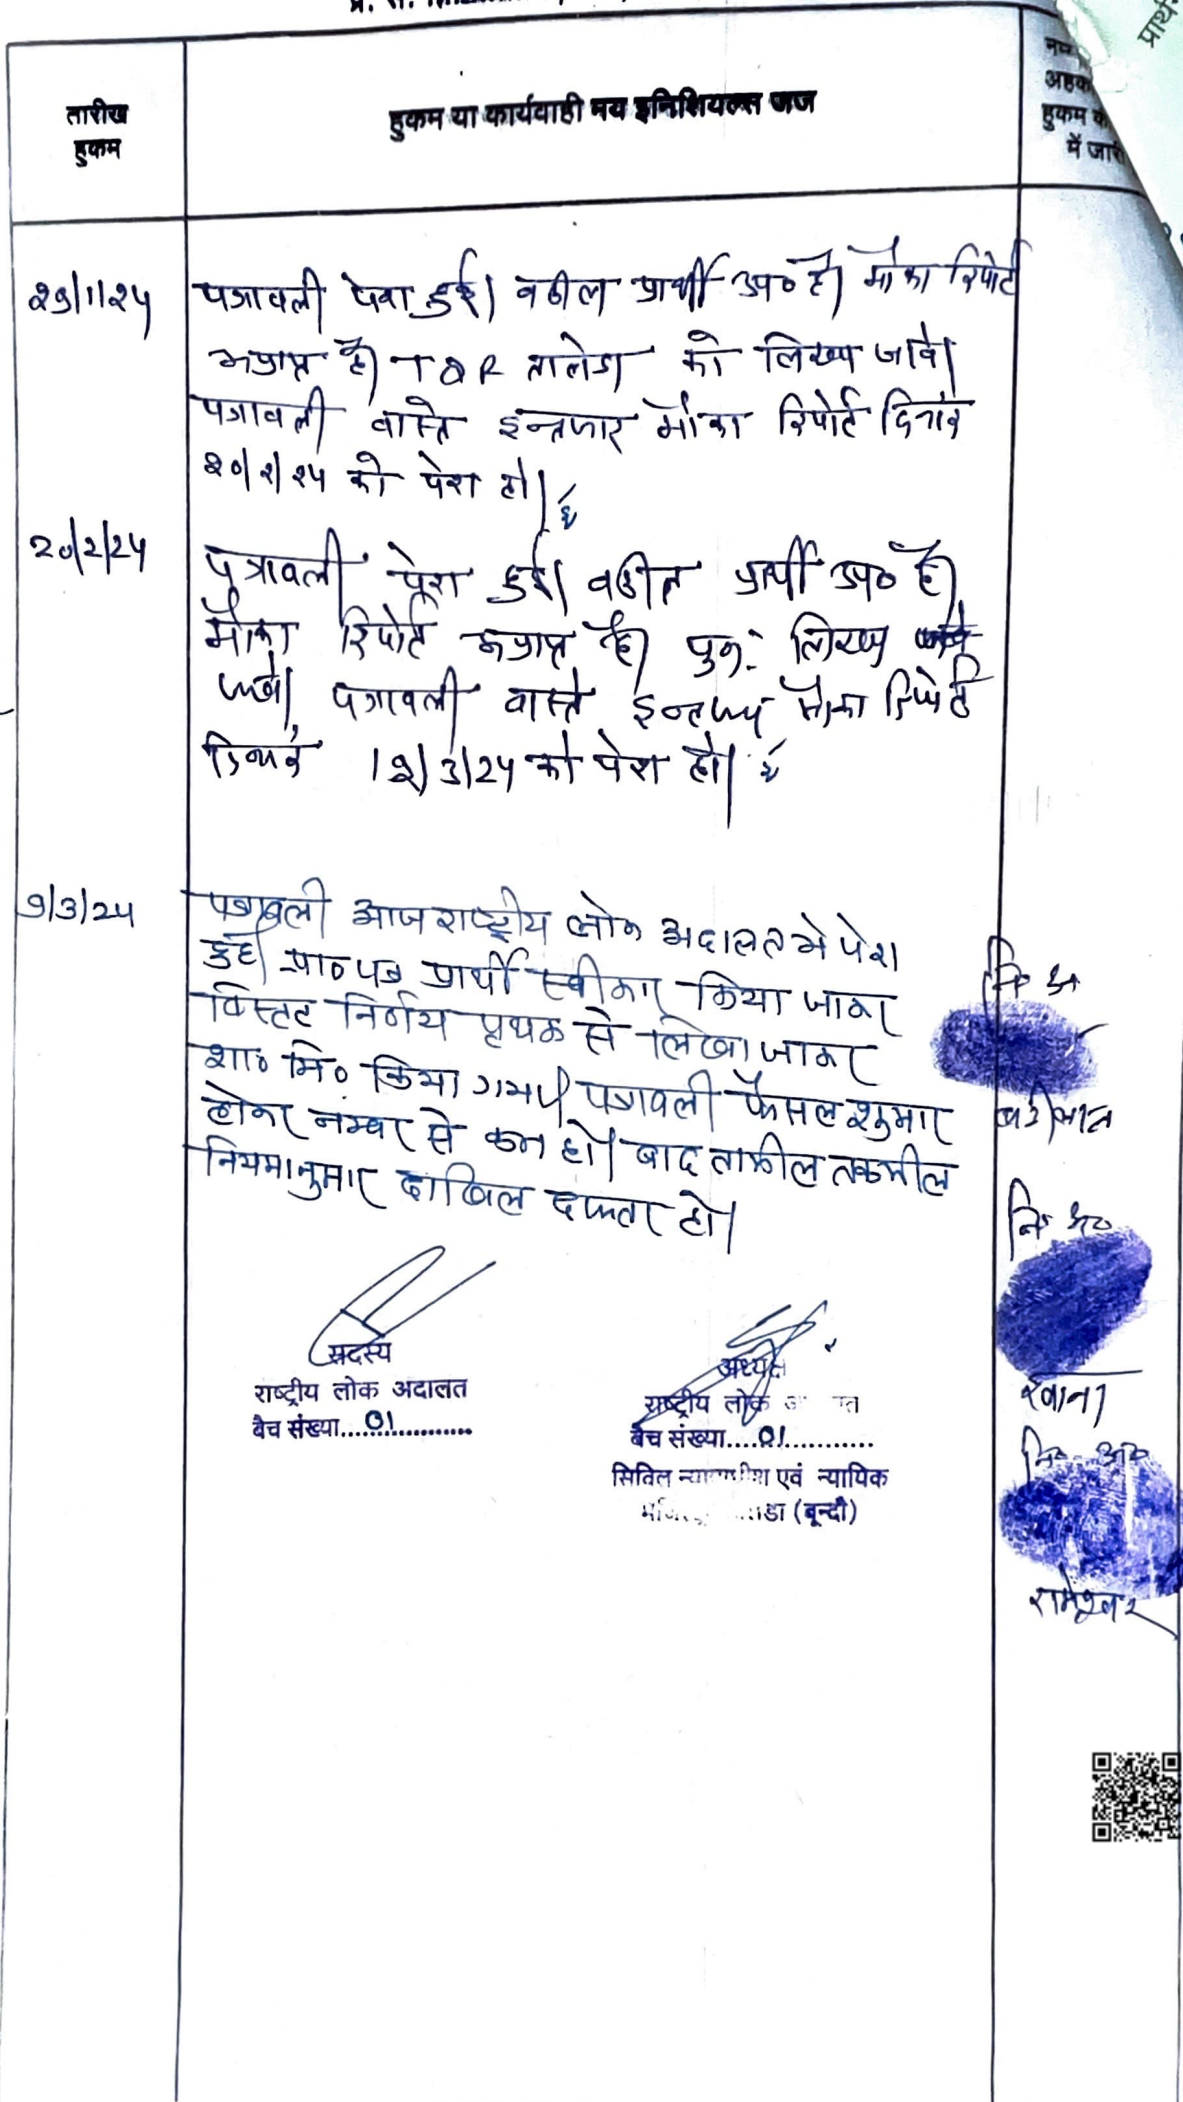 तारीख
हुकम
हुकम या कार्यवाही मय इनिशियल्स जज
हुकम
में जारी
प्रार्थ
29/1/24
पत्रावली पेश हुई। वकील प्रार्थी उप० है। मौका रिपोर्ट
अप्राप्त है। TDR तालेडा को लिखा जावे।
पत्रावली वास्ते इन्तजार मौका रिपोर्ट दिनांक
20/2/24 को पेश हो।
20/2/24
पत्रावली पेश हुई। वकील प्रार्थी उप० है।
मौका रिपोर्ट अप्राप्त है। पुनः लिखा
जावे। पत्रावली वास्ते इन्तजार मौका रिपोर्ट
दिनांक 12/3/24 को पेश हो।
9/3/24
पत्रावली आज राष्ट्रीय लोक अदालत मे पेश
हुई। प्रा० पत्र प्रार्थी स्वीकार किया जाकर
विस्तृत निर्णय पृथक से लिखा जाकर
शा० मि० किया गया। पत्रावली फैसल शुमार
होकर नम्बर से कम हो। बाद तामील तकमील
नियमानुसार दाखिल दफ्तर हो।
नि० अ०
नि० अ०
नि० अ०
रामेश्वर
सदस्य
राष्ट्रीय लोक अदालत
बैच संख्या....01............
अध्यक्ष
राष्ट्रीय लोक
बैच संख्या....01............
सिविल न्यायाधीश एवं न्यायिक
(बून्दी)